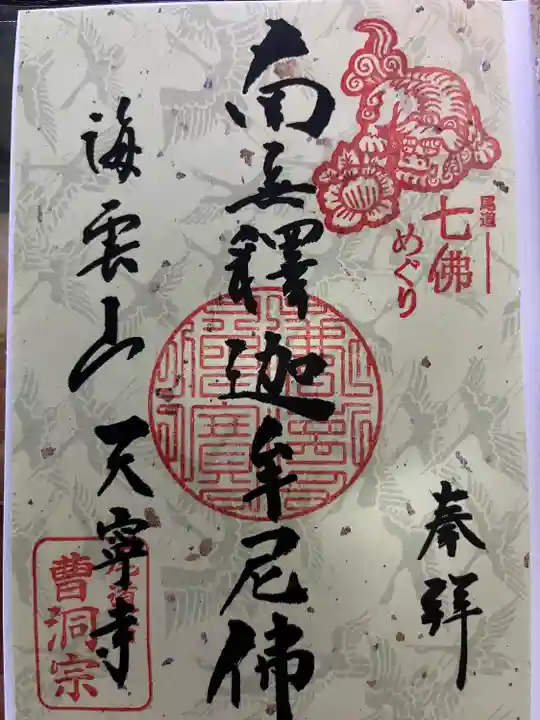 尾道
七佛
めぐり
奉拝
南無釋迦牟尼佛
海雲山 天寧寺
曹洞宗